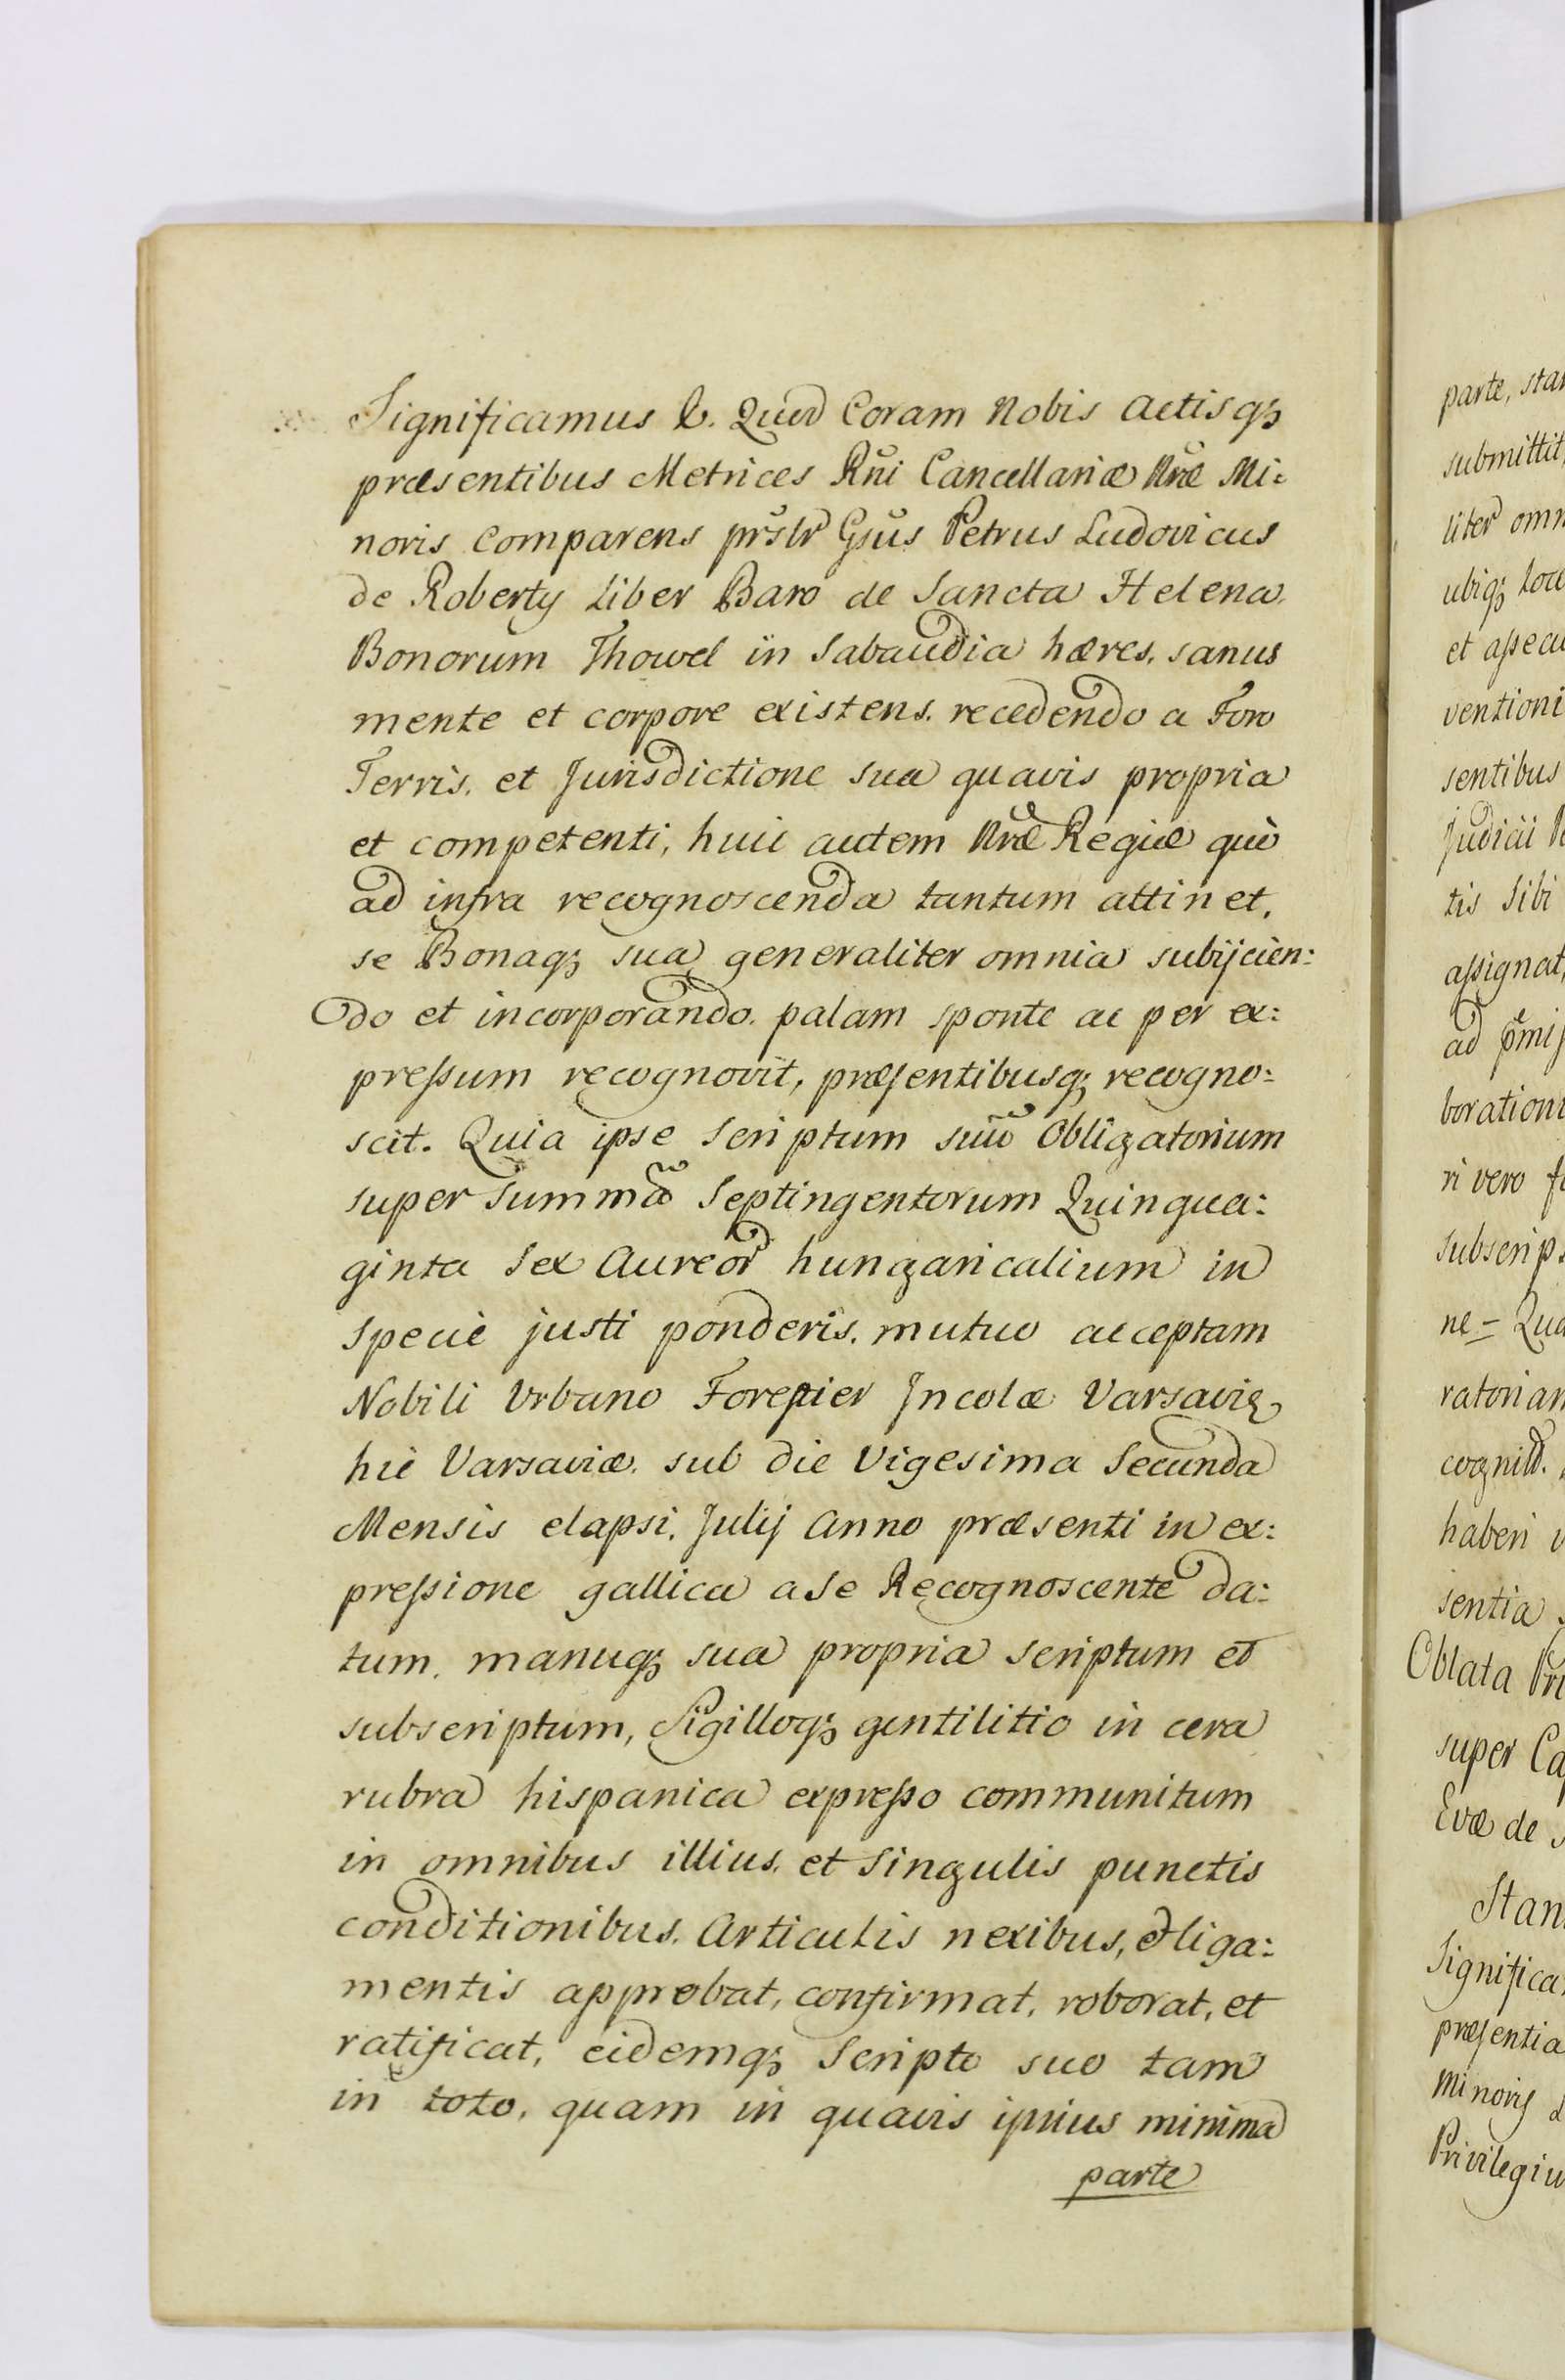 Significamus &. Quod Coram Nobis Actisq;
præsentibus Metrices Rñi Cancellariæ Nræ Mi:
noris Comparens prslr Gsus Petrus Ludovicus
de Roberty Liber Baro de Sancta Helena.
Bonorum Thowel in Sabaudia hæres, sanus
mente et corpore existens. recedendo a Foro
Terris, et Jurisdictione sua quavis propria
et competenti, huic autem Nræ Regiæ quò
ad infra recognoscenda tantum attinet,
se Bonaq; sua generaliter omnia subijcien:
do et incorporando. palam sponte ac per ex:
pressum recognovit, præsentibusq; recogno:
scit. Quia ipse Scriptum suũ Obligatorium
super Summã Septingentorum Quinqua:
ginta Sex Aureor hungaricalium in
Specie justi ponderis. mutuo acceptam
Nobili Urbano Foressier Incolæ Varsaviæ
hic Varsaviæ. sub die Vigesima Secunda
Mensis elapsi, Julij Anno præsenti in ex:
pressione gallica a Se Recognoscente da:
tum. manuq; sua propria scriptum et
subscriptum, Sigilloq; gentilitio in cera
rubra hispanica expresso communitum
in omnibus illius. et Singulis punctis
conditionibus. Articulis nexibus, et liga:
mentis approbat, confirmat, roborat, et
ratificat, eidemq; Scripto suo tam
in toto, quam in quavis ipsius minima
parte
parte, sta
submittit,
liter omn
ubiq; loco
et assecu
ventioni
sentibus
Judicii
tis Sibi
assignat,
ad p̃mis
boration
ri vero
Subscrip
ne - Qua
ratorian
cognit.
haberi
sentia
Oblata Pri
super Ca
Evæ de
Stan
Significa
præsentia
Minoris
Privilegiu